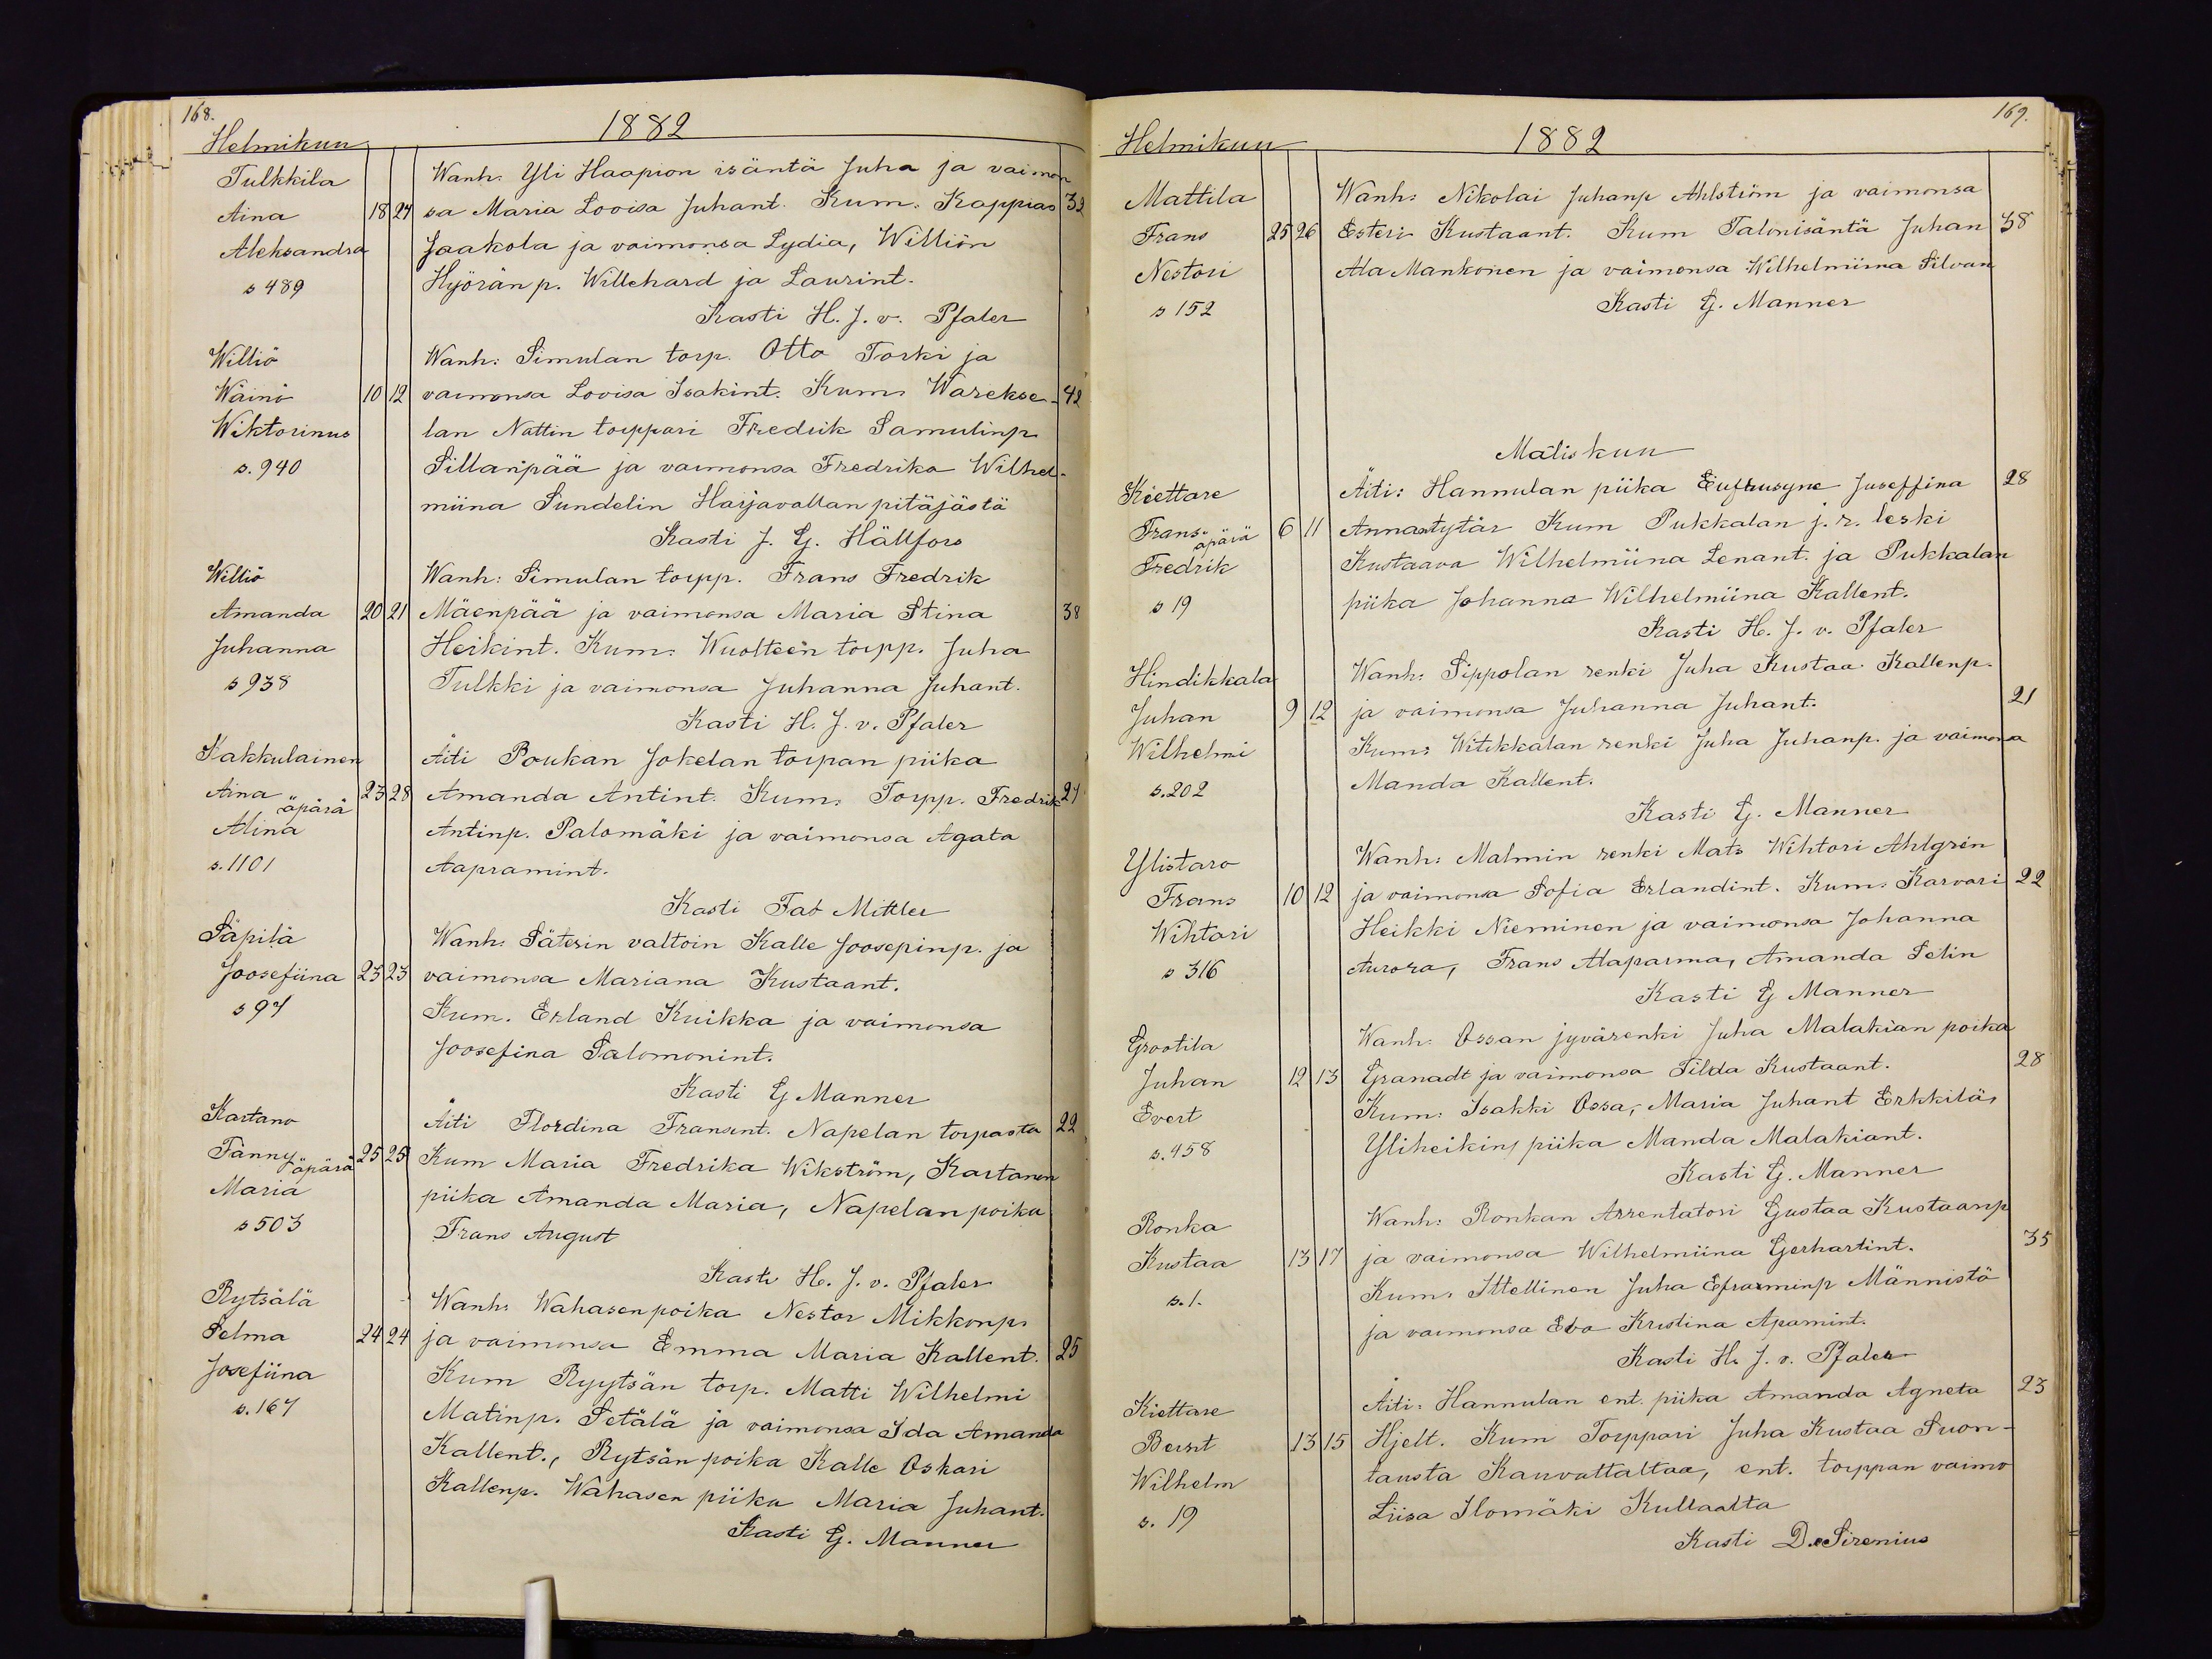 168.
Helmikuu 1882
Tulkkila Wanh. Yli Haapion isäntä Juha ja vaimon
Aina 18 24 sa Maria Lovisa Juhant. Kum. Kappias 32
Aleksandra Jaakola ja vaimonsa Lydia, Williön
s 489 Hyörän p. Willehard ja Laurint.
Kasti H. J. v. Pfaler
Williö Wanh: Simulan torp. Otto Torki ja
Wäinö 10 12 vaimonsa Lovisa Isakint. Kum: Warekse- 42
Wiktorinus lan Nattin torppari Fredrik Samulinp
s. 940 Sillanpää ja vaimonsa Fredrika Wilhel-
miina Sundelin Harjavallan pitäjästä
Kasti J. G. Hällfors
Williö Wanh: Simulan torpp. Frans Fredrik
Amanda 20 21 Mäenpää ja vaimonsa Maria Stina 38
Juhanna Heikint. Kum: Wuolteen torpp. Juha
s 938 Tulkki ja vaimonsa Juhanna Juhant.
Kasti H. J. v. Pfaler
Kakkulainen Äiti Poukan Jokelan torpan piika
Aina äpärä 23 28 Amanda Antint. Kum: Torpp. Fredrik 27
Alina Antinp. Palomäki ja vaimonsa Agata
s. 1101 Aapramint.
Kasti Fab Mittler
Säpilä Wanh: Säterin valtoin Kalle Joosepinp. ja
Joosefiina 23 23 vaimonsa Mariana Kustaant.
s 97 Kum. Erland Kuikka ja vaimonsa
Joosefina Salomonint.
Kasti G Manner
Kartano Äiti Flordina Fransint. Napelan torpasta 22
Fanny äpärä 25 25 Kum Maria Fredrika Wikström, Kartanon
Maria piika Amanda Maria, Napelan poika
s 503 Frans August
Kasti H. J. v. Pfaler
Rytsälä Wanh: Wahasen poika Nestor Mikkonp.
Selma 24 24 ja vaimonsa Emma Maria Kallent. 25
Josefiina Kum Ryytsän torp. Matti Wilhelmi
s. 167 Matinp. Setälä ja vaimonsa Ida Amanda
Kallent., Rytsän poika Kalle Oskari
Kallenp. Wahasen piika Maria Juhant.
Kasti G. Manner
169.
Helmikuu 1882
Mattila Wanh: Nikolai Juhanp Ahlström ja vaimonsa
Frans 25 26 Esteri Kustaant. Kum Talonisäntä Juhan 38
Nestori Ala Mankonen ja vaimonsa Wilhelmiina Silvan
s 152 Kasti G. Manner
Maliskuu
Kiettare Äiti: Hannulan piika Eufrusyne Juseffina 28
Frans äpärä 6 11 Annastytär Kum Pukkalan j. r. leski
Fredrik Kustaava Wilhelmiina Lenant. ja Pukkalan
s 19 piika Johanna Wilhelmiina Kallent.
Kasti H. J. v. Pfaler
Hindikkala Wanh: Sippolan renki Juha Kustaa Kallenp.
Juhan 9 12 ja vaimonsa Juhanna Juhant. 21
Wilhelmi Kum: Witikkalan renki Juha Juhanp. ja vaimonsa
s. 202 Manda Kallent.
Kasti G. Manner
Ylistaro Wanh: Malmin renki Mats Wihtori Ahlgrén
Frans 10 12 ja vaimonsa Sofia Erlandint. Kum: Karvari 22
Wihtari Heikki Nieminen ja vaimonsa Johanna
s 316 Aurora, Frans Alaparma, Amanda Selin
Kasti G Manner
Grootila Wanh: Ossan jyvärenki Juha Malakian poika
Juhan 12 13 Granadt ja vaimonsa Tilda Kustaant. 28
Evert Kum: Isakki Ossa, Maria Juhant Erkkilä,
s. 458 Yliheikin piika Manda Malakiant.
Kasti G. Manner
Ronka Wanh: Ronkan Arrentatori Gustaa Kustaanp
Kustaa 13 17 ja vaimonsa Wilhelmiina Gerhartint. 35
s. 1. Kum: Ittellinen Juha Efraiminp Männistö
ja vaimonsa Eva Kristina Apamint.
Kasti H. J. v. Pfaler
Kiettare Äiti: Hannulan ent. piika Amanda Agneta 23
Bernt 13 15 Hjelt. Kum Torppari Juha Kustaa Suon-
Wilhelm tausta Kauvattaltaa, ent. torppan vaimo
s. 19 Liisa Ilomäki Kullaalta
Kasti D. Sirenius